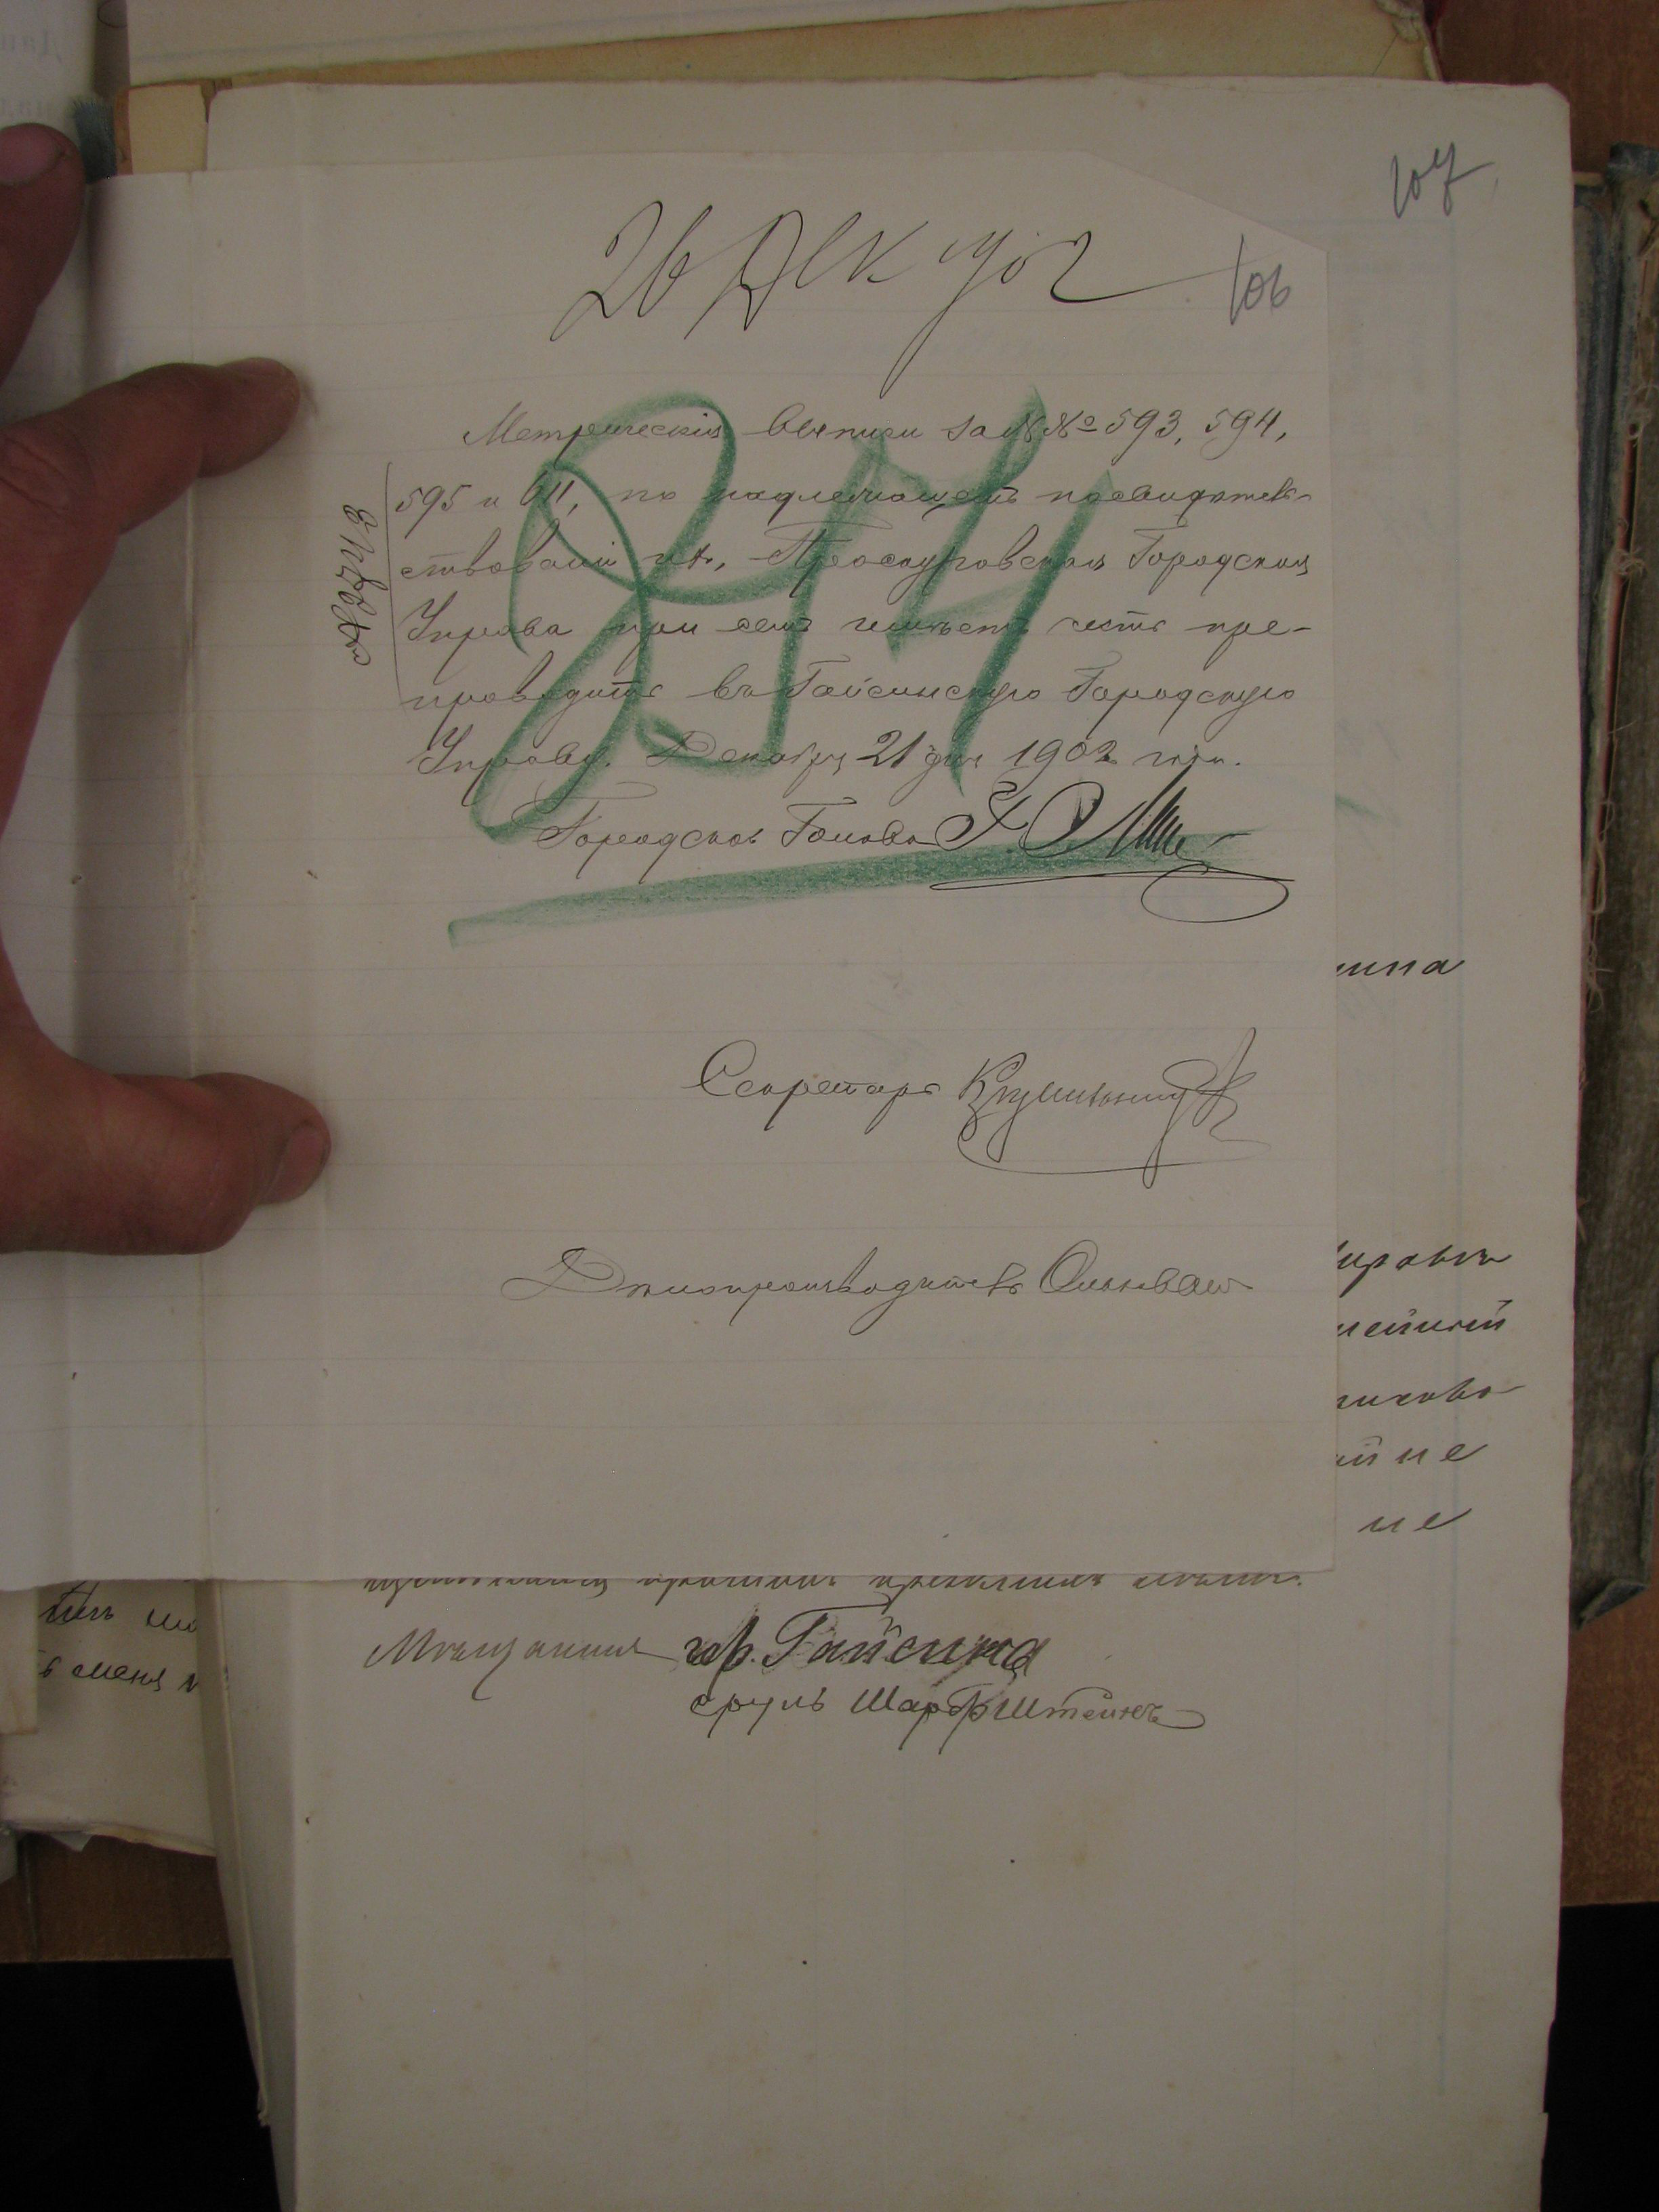 107
26 Дек 902
106
Метрическія выписи за №№ 593, 594,
595 и 611, по надлежащемъ засвидѣтель-
ствованіи ихъ, Проскуровская Городская
Управа при семъ имѣетъ честь пре-
проводить въ Гайсинскую Городскую
Управу. Декабря 21 дня 1902 года.
Городской Голова
874
Секретарь
Дѣлопроизводитель
мина
нѣйшій
ше
не
Мѣщанинъ гор. Гайсина
сруль Шарфштейнъ
меня